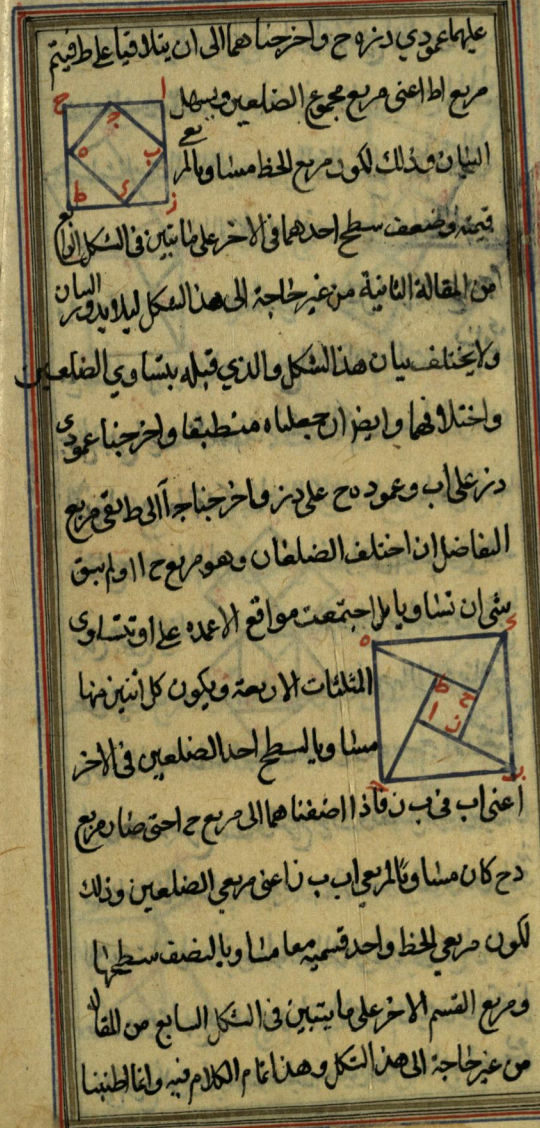 عليهما عمودي د ز ه ح واخرجناهما الى ان يتلاقيا على ط فيتم
مربع اط اعنى مربع مجموع الضلعين ويسهل
البيان وذلك لكون مربع الخط مساويا لمربعي
قسميه وضعف سطح احدهما فى الاخر على ما تبين فى الشكل الرابع
من المقالة الثانية من غير حاجة الى هذا الشكل ليلا يدور البيان
ولا يختلف بيان هذا الشكل والذي قبله بتساوي الضلعين
واختلافهما وايضا ان جعلناه منطبقا واخرجنا عمودي
د ز على اب وعمود ه ح على د ز واخرجنا ج ا الى ط بقى مربع
التفاضل ان اختلف الضلعان وهو مربع ح ا ولم يبق
شى ان تساويا بل اجتمعت مواقع الاعمدة على ا وتتساوى
المثلثات الاربعة ويكون كل اثنين منها
مساويا لسطح احد الضلعين فى الاخر
اعنى اب فى ب ز فاذا اضفناهما الى مربع ح ا حتى صار مربع
د ح كان مساويا لمربعي اب ب ز اعنى مربعي الضلعين وذلك
لكون مربعي الخط واحد قسميه معا مساويا لضعف سطحهما
ومربع القسم الاخر على ما يتبين فى الشكل السابع من المقالة
من غير حاجة الى هذا الشكل وهذا تمام الكلام فيه وانما اطنبنا
ح ج ا
ه ب
ط ك ز
ه د
ط ح
ا ز
ج ب